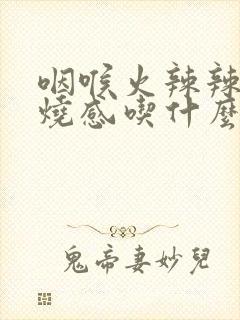 咽喉火辣辣
燒感喫什麼
鬼帝妻妙兒